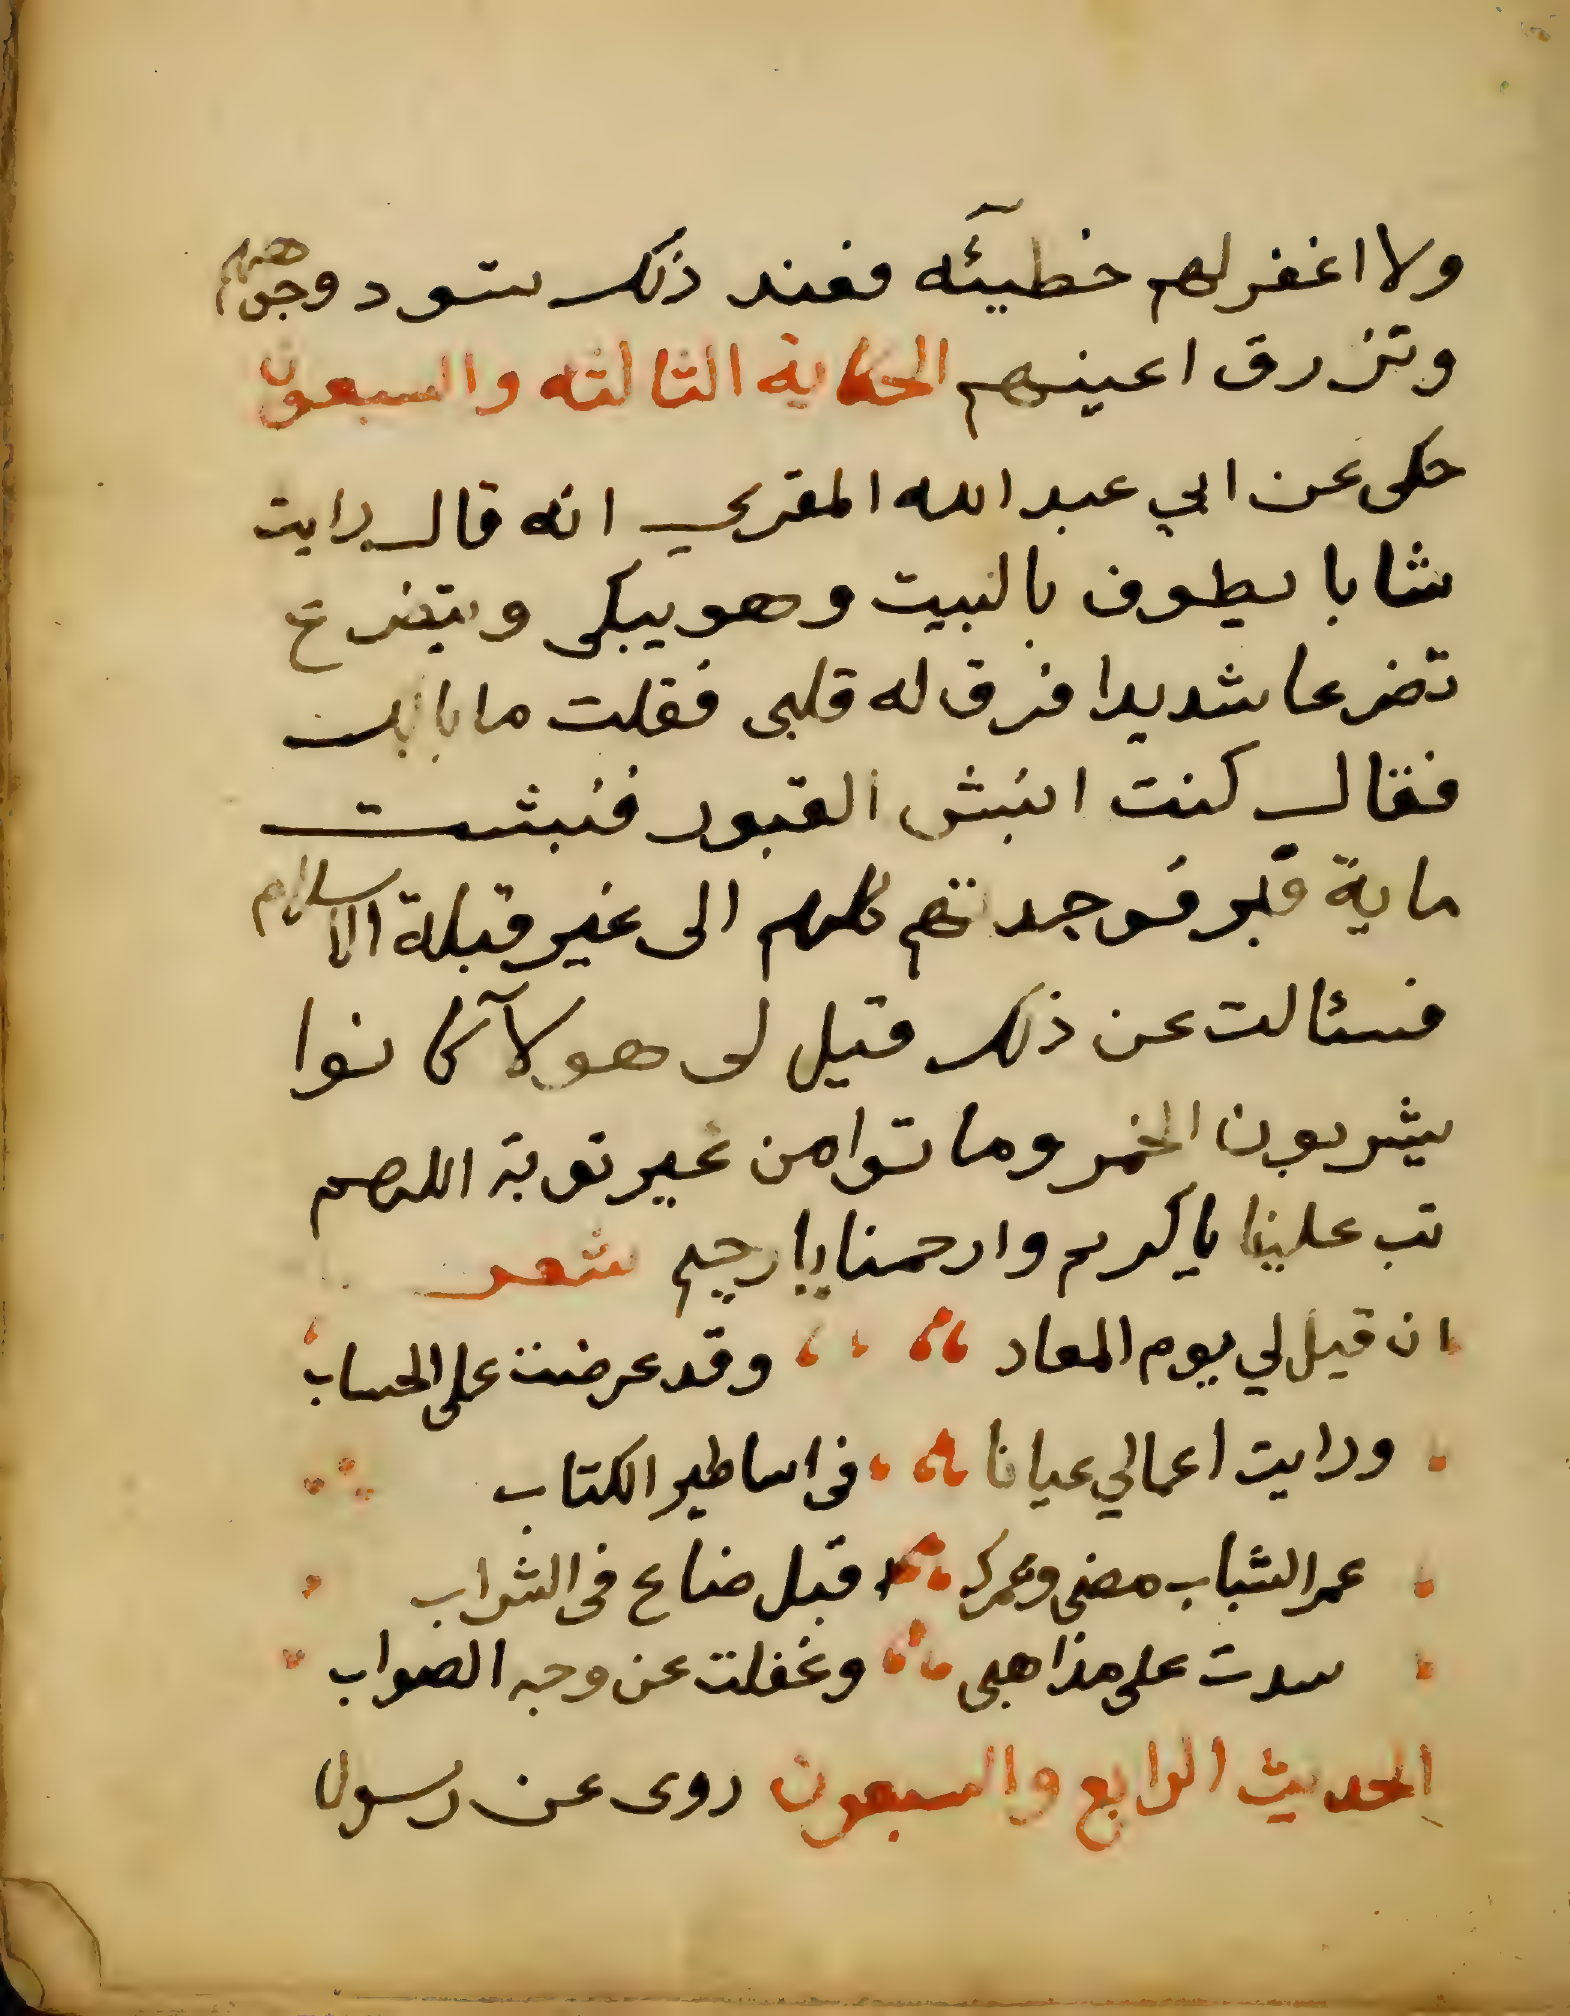 ولا اغفر لهم خطيئه فعند ذلك تسود وجوههم
وتزرق اعينهم الحكاية الثالثه والسبعون
حكى عن ابي عبد الله المقري انه قال رايت
شابا يطوف بالبيت وهو يبكى ويتضرع
تضرعا شديدا فرق له قلبى فقلت ما بالك
فقال كنت انبش القبور فنبشت
ماية قبر فوجدتهم كلهم الى غير قبلة الاسلام
فسئالت عن ذلك قيل لى هولآ كانوا
يشربون الخمر وماتوا من غير توبة اللهم
تب علينا يا كريم وارحمنا يا رحيم شعر
ان قيل لي يوم المعاد وقد عرضت على الحساب
ورايت اعمالي عيانا فى اساطير الكتاب
عمر الشباب مضى وعمرك قبل ضاع فى الشراب
سدت على مذاهبى وغفلت عن وجه الصواب
الحديث الرابع والسبعون روى عن رسول